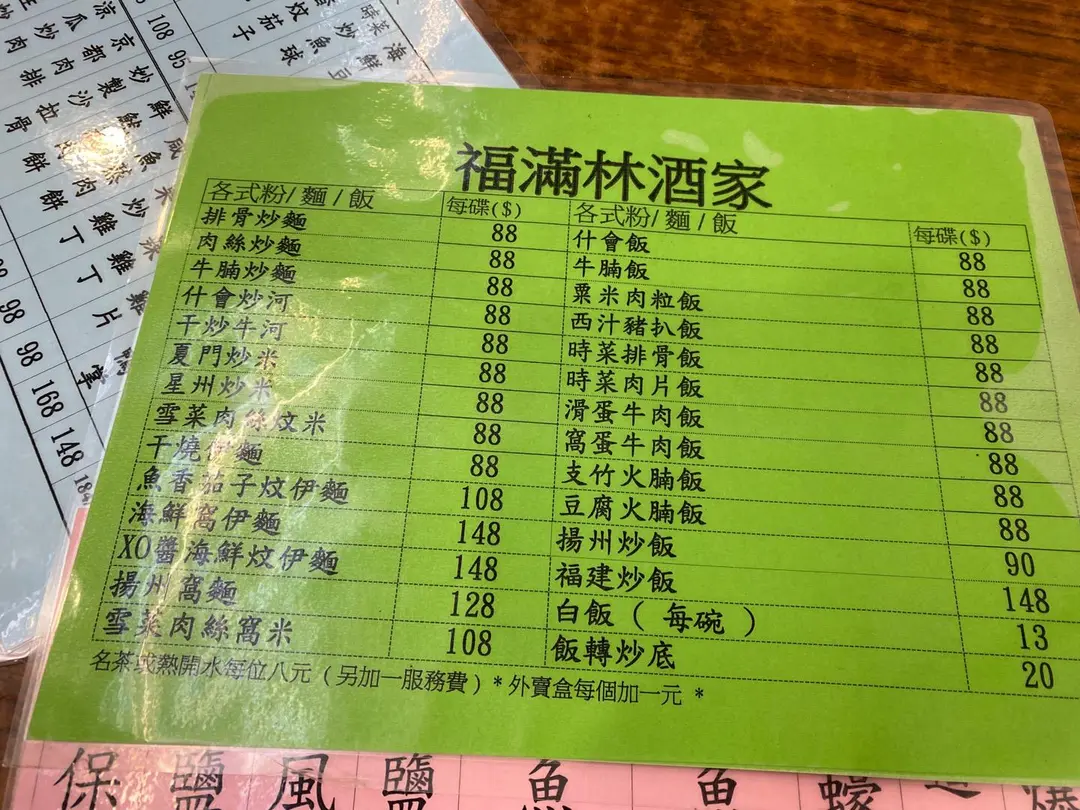 福滿林酒家
各式粉/ 麵 / 飯 每碟($) 各式粉/ 麵 / 飯 每碟($)
排骨炒麵 88 什會飯 88
肉絲炒麵 88 牛腩飯 88
牛腩炒麵 88 粟米肉粒飯 88
什會炒河 88 西汁豬扒飯 88
干炒牛河 88 時菜排骨飯 88
夏門炒米 88 時菜肉片飯 88
星州炒米 88 滑蛋牛肉飯 88
雪菜肉絲炆米 88 窩蛋牛肉飯 88
干燒伊麵 88 支竹火腩飯 88
魚香茄子炆伊麵 108 豆腐火腩飯 88
海鮮窩伊麵 148 揚州炒飯 90
XO醬海鮮炆伊麵 148 福建炒飯 148
揚州窩麵 128 白飯 ( 每碗 ) 13
雪菜肉絲窩米 108 飯轉炒底 20
名茶或熱開水每位八元 ( 另加一服務費 ) * 外賣盒每個加一元 *
108 95
98 98 168 148
保 鹽 風 鹽 魚 魚 蠔